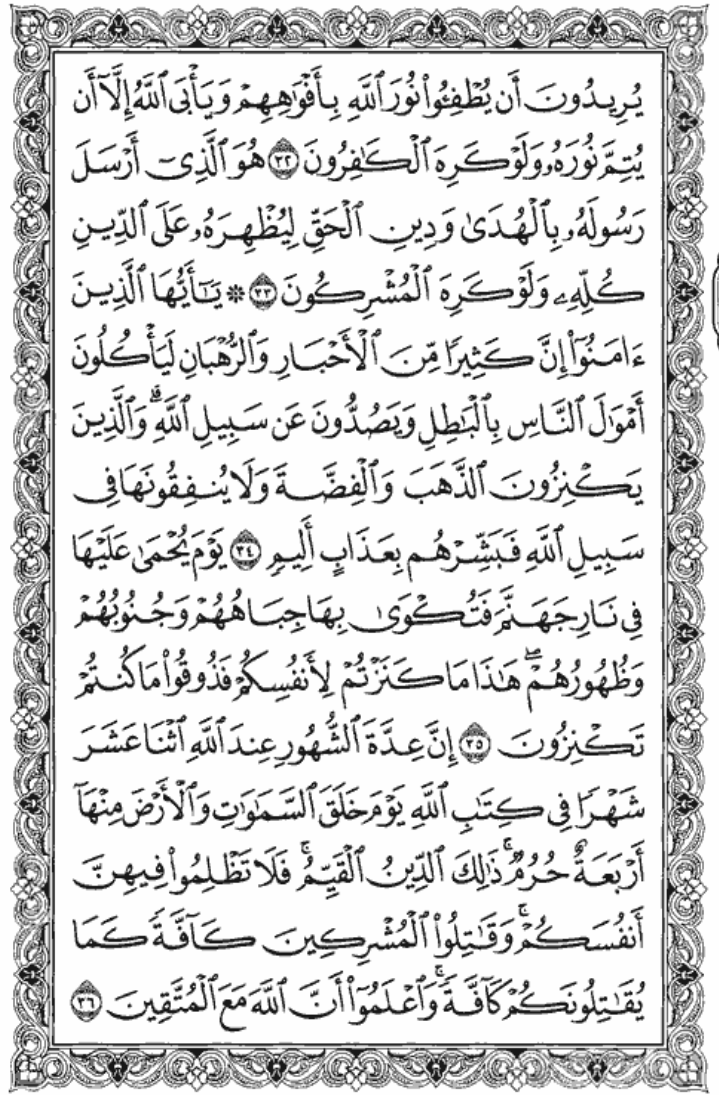 يُرِيدُونَ أَن يُطْفِـُٔوا۟ نُورَ ٱللَّهِ بِأَفْوَٰهِهِمْ وَيَأْبَى ٱللَّهُ إِلَّآ أَن
يُتِمَّ نُورَهُۥ وَلَوْ كَرِهَ ٱلْكَٰفِرُونَ ٣٢ هُوَ ٱلَّذِىٓ أَرْسَلَ
رَسُولَهُۥ بِٱلْهُدَىٰ وَدِينِ ٱلْحَقِّ لِيُظْهِرَهُۥ عَلَى ٱلدِّينِ
كُلِّهِۦ وَلَوْ كَرِهَ ٱلْمُشْرِكُونَ ٣٣ ۞ يَٰٓأَيُّهَا ٱلَّذِينَ
ءَامَنُوٓا۟ إِنَّ كَثِيرًا مِّنَ ٱلْأَحْبَارِ وَٱلرُّهْبَانِ لَيَأْكُلُونَ
أَمْوَٰلَ ٱلنَّاسِ بِٱلْبَٰطِلِ وَيَصُدُّونَ عَن سَبِيلِ ٱللَّهِ ۗ وَٱلَّذِينَ
يَكْنِزُونَ ٱلذَّهَبَ وَٱلْفِضَّةَ وَلَا يُنفِقُونَهَا فِى
سَبِيلِ ٱللَّهِ فَبَشِّرْهُم بِعَذَابٍ أَلِيمٍ ٣٤ يَوْمَ يُحْمَىٰ عَلَيْهَا
فِى نَارِ جَهَنَّمَ فَتُكْوَىٰ بِهَا جِبَاهُهُمْ وَجُنُوبُهُمْ
وَظُهُورُهُمْ ۖ هَٰذَا مَا كَنَزْتُمْ لِأَنفُسِكُمْ فَذُوقُوا۟ مَا كُنتُمْ
تَكْنِزُونَ ٣٥ إِنَّ عِدَّةَ ٱلشُّهُورِ عِندَ ٱللَّهِ ٱثْنَا عَشَرَ
شَهْرًا فِى كِتَٰبِ ٱللَّهِ يَوْمَ خَلَقَ ٱلسَّمَٰوَٰتِ وَٱلْأَرْضَ مِنْهَآ
أَرْبَعَةٌ حُرُمٌ ۚ ذَٰلِكَ ٱلدِّينُ ٱلْقَيِّمُ ۚ فَلَا تَظْلِمُوا۟ فِيهِنَّ
أَنفُسَكُمْ ۚ وَقَٰتِلُوا۟ ٱلْمُشْرِكِينَ كَآفَّةً كَمَا
يُقَٰتِلُونَكُمْ كَآفَّةً ۚ وَٱعْلَمُوٓا۟ أَنَّ ٱللَّهَ مَعَ ٱلْمُتَّقِينَ ٣٦